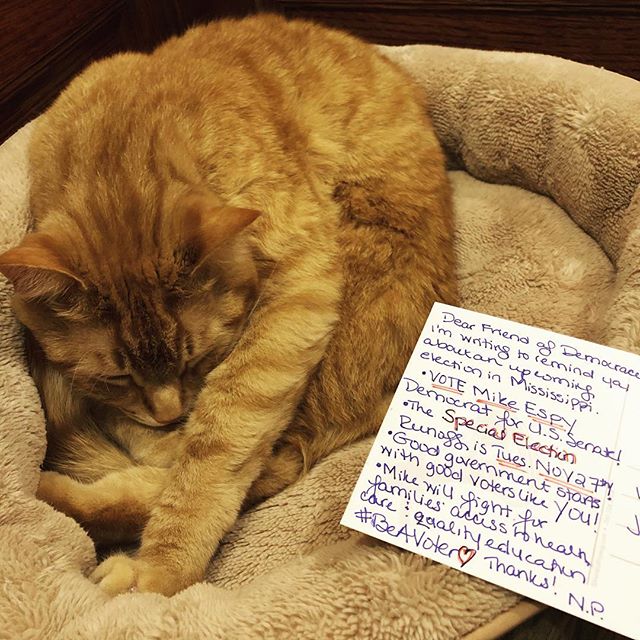 Dear Friend of Democracy
I'm writing to remind you
about an upcoming
election in Mississippi.
• VOTE Mike Espy
Democrat for U.S. Senate!
• The Special Election
Runoff is Tues. Nov 27th!
• Good government starts
with good voters like YOU!
• Mike will fight for
families' access to health
care & quality education
#BeAVoter Thanks! N.P.